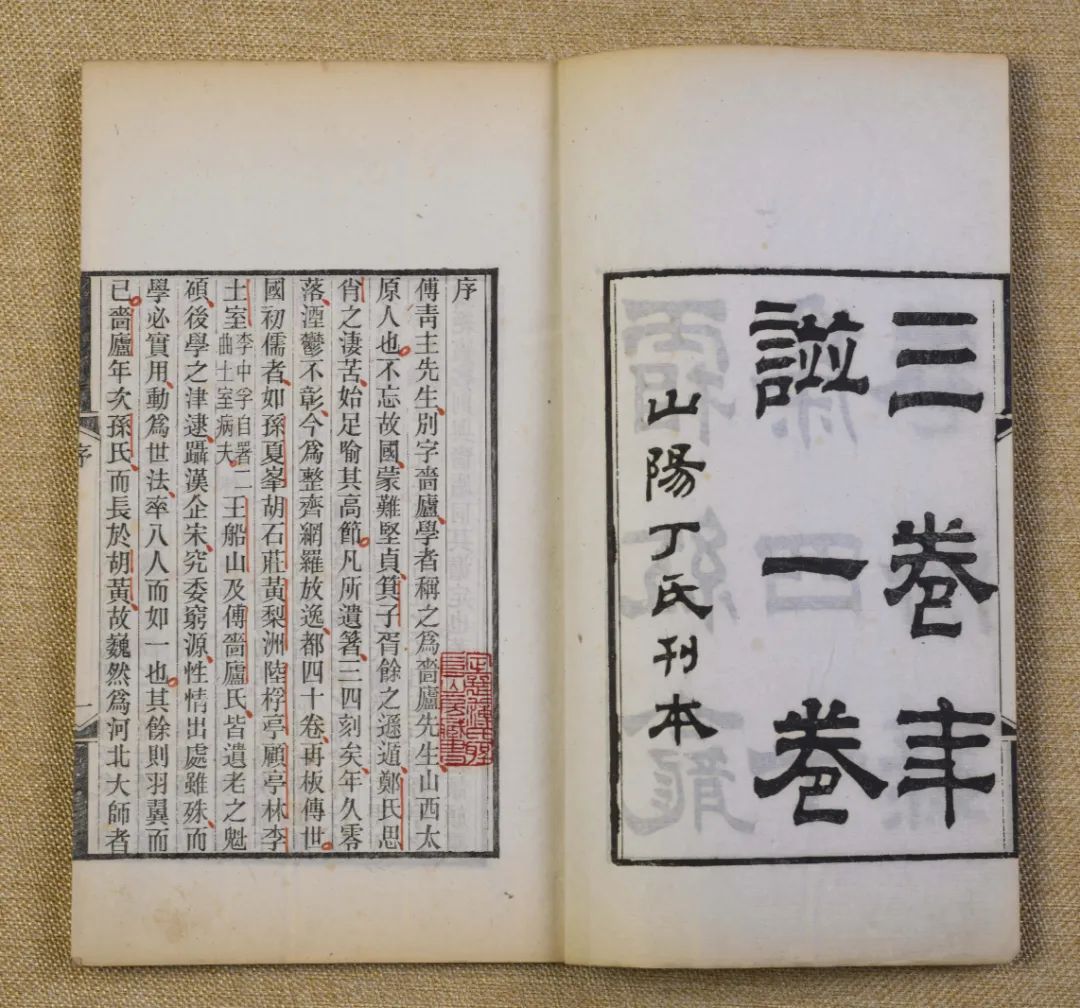 三卷年
譜一卷
山陽丁氏刊本
序
傅靑主先生別字嗇廬學者稱之爲嗇廬先生山西太
原人也不忘故國蒙難堅貞箕子胥餘之遜遁鄭氏思
肖之淒苦始足喻其高節凡所遺箸三四刻矣年久零
落湮鬱不彰今爲整齊網羅放逸都四十卷再板傳世
國初儒者如孫夏峯胡石莊黃梨洲陸桴亭顧亭林李
土室李中孚自署二曲土室病夫王船山及傅嗇廬氏皆遺老之魁
碩後學之津逮躡漢企宋究委窮源性情出處雖殊而
學必實用動爲世法率八人而如一也其餘則羽翼而
已嗇廬年次孫氏而長於胡黃故巍然爲河北大師者
序
一